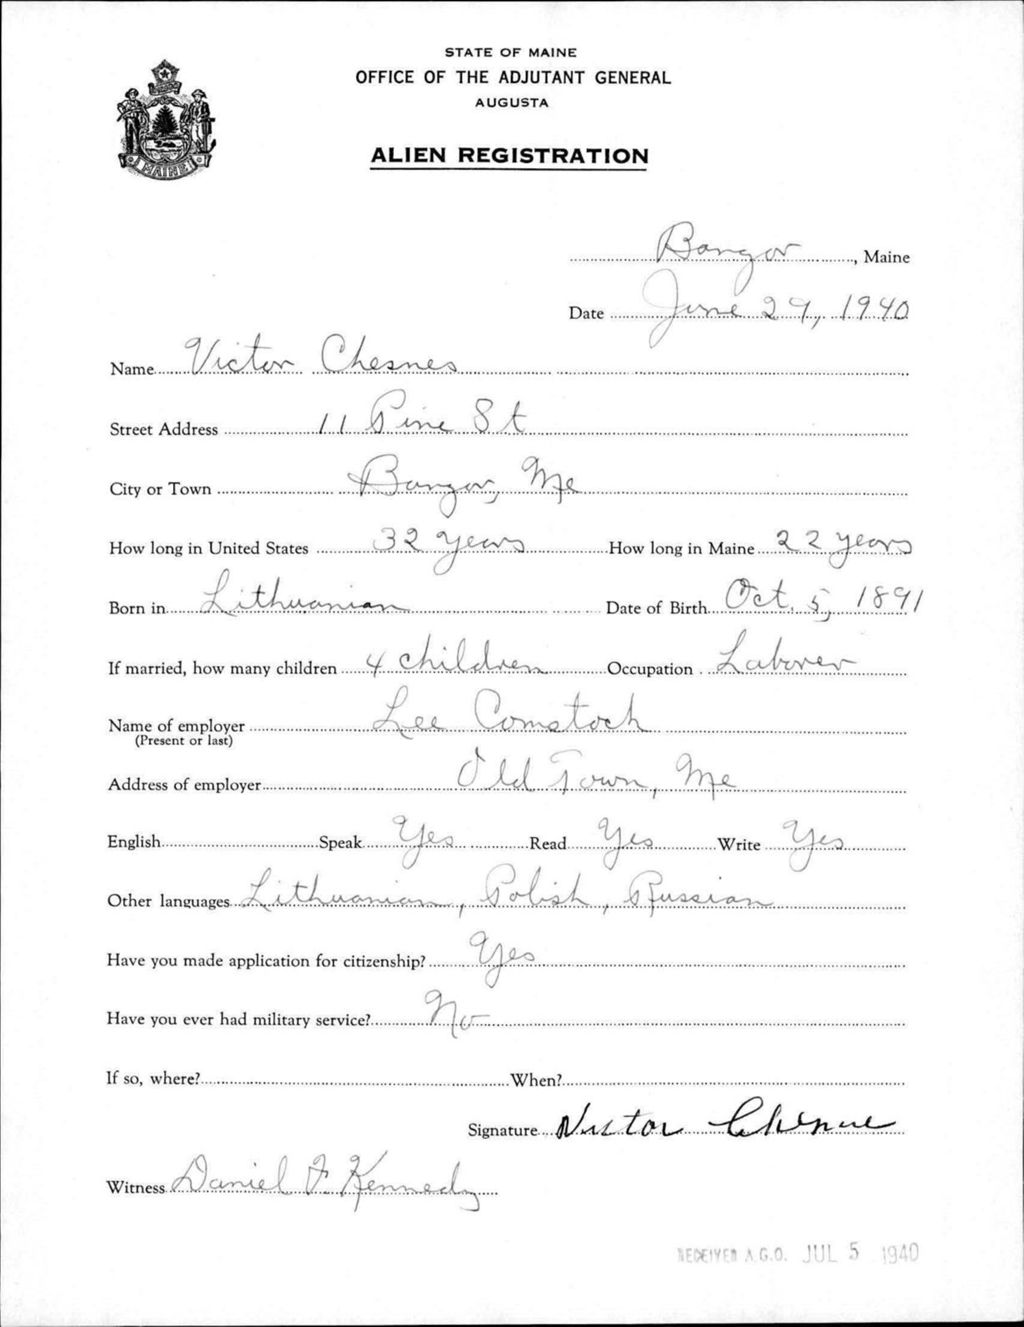 STATE OF MAINE
OFFICE OF THE ADJUTANT GENERAL
AUGUSTA
ALIEN REGISTRATION
MAINE
Bangor, Maine
Date June 29, 1940
Name Victor Chesnes
Street Address 11 Pine St
City or Town Bangor, Me
How long in United States 32 years How long in Maine 22 years
Born in Lithuanian Date of Birth Oct. 5, 1891
If married, how many children 4 children Occupation Laborer
Name of employer Lee Comstock
(Present or last)
Address of employer Old Town, Me
English Speak Yes Read Yes Write Yes
Other languages Lithuanian, Polish, Russian
Have you made application for citizenship? Yes
Have you ever had military service? No
If so, where? When?
Signature
Witness Daniel F. Kennedy
RECEIVED A.G.O. JUL 5 1940